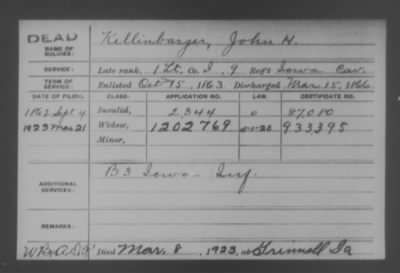 DEAD
NAME OF SOLDIER:
Kellinbarger, John H.
SERVICE:
Late rank, 1 Lt, Co. I, 9 Reg't Iowa Cav.
TERM OF SERVICE:
Enlisted Oct 15, 1863 Discharged Mar. 15, 1866
DATE OF FILING. CLASS. APPLICATION NO. LAW. CERTIFICATE NO.
Sept 4 Invalid, 2,344 87,080
1923 Mar 21 Widow, 1202769 933,395
Minor,
ADDITIONAL SERVICES:
B 3 Iowa Inf.
REMARKS:
Died Mar. 8, 1923, at Grinnell Ia